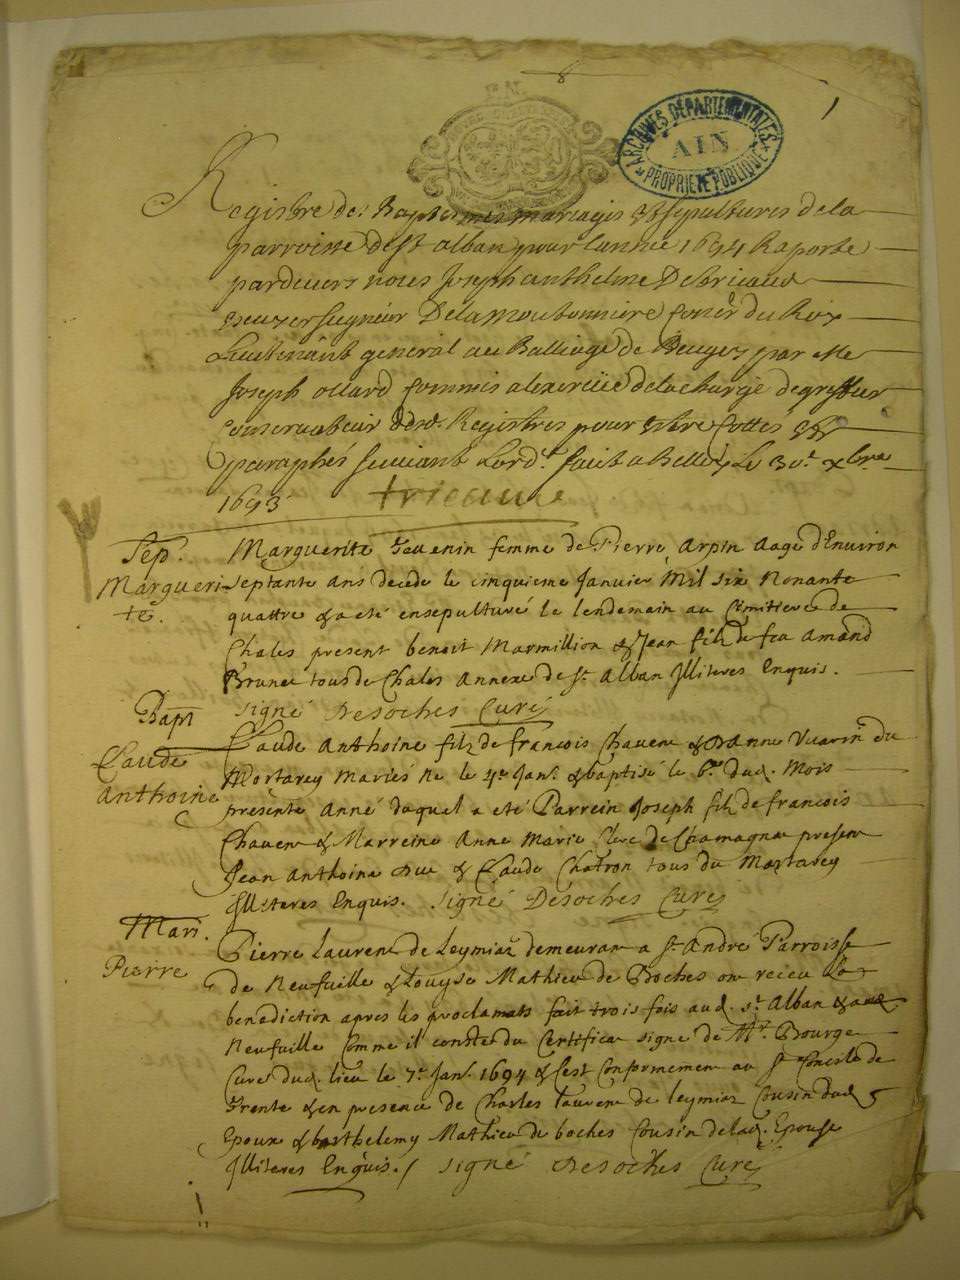 1
ARCHIVES DEPARTEMENTALES
AIN
PROPRIETE PUBLIQUE
Registre des Baptesmes mariages et sepultures de la
parroisse de st alban pour l'année 1694 Raporté
pardevers nous Joseph anthelme De tricaud
seigneur De la moutonniere Coner du Roy
Lieutenant general au Balliage de Beugey par Me
Joseph ollard commis a l'exercice de la charge de greffier
conservateur desd. Registres pour estre Cottés et
paraphés suivant L'ord. fait a Belley Le 30e xbre
1693 tricaud
Sep. Marguerite Jevenin femme de Pierre Arpin Aage d'Environ
Margueri- septante ans decede le cinquieme Janvier Mil six Nonante
te. quattre & a eté ensepulturé le lendemain au Cimitiere de
Chales present benoit Marmillion & Jean filz de feu Amand
Brunet tous de Chales Annexe de St Alban Illiteres Enquis.
signé Desoches Curé
Bapt Claude Anthoine filz de francois Chaven & D'Anne Vuarin du
Claude Mortarey mariés Ne le 4e Janr. & baptisé le 6e dud. Mois
Anthoine presente Année duquel a eté Parrein Joseph filz de francois
Chaven & Marreine Anne Marie de Chamagna present
Jean Anthoine & Claude Chatron tous du Mortarey
Illiteres Enquis. signé Desoches Curé
Mari. Pierre Lauren de Leymiaz demeuran a St André Parroisse
Pierre de Neufville & Louyse Mathieu de Boches on receu La
benediction apres les proclamats fait trois fois aud. St. Alban & aud.
Neufuille Comme il conste du Certificat signé de Mr. Bourge
Curé dud. lieu le 7e Janr. 1694 & c'est Conformemen au St Concile de
Trente & en presence de Charles Lauren de leymiaz Cousin dud
Epoux & barthelemy Mathieu de boches Cousin de lad. Epouse
Illiteres Enquis. / signé Desoches Curé